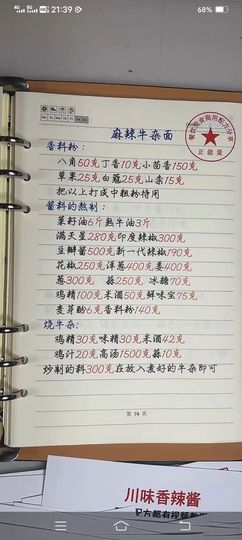 21:39
68%
麻辣牛杂面
香料粉：
八角50克丁香10克小茴香150克
草果25克白蔻25克山柰15克
把以上打成中粗粉待用
酱料的熬制：
菜籽油6斤熟牛油3斤
满天星280克印度辣椒300克
豆瓣酱500克新一代辣椒190克
花椒250克洋葱400克姜400克
葱300克 蒜250克 冰糖70克
鸡精100克米酒50克鲜味宝75克
麦芽酚6克香料粉140克
烧牛杂：
鸡精30克味精30克米酒42克
鸡汁20克高汤1500克蒜10克
炒制的料300克在放入煮好的牛杂即可
正能量
第 74 页
川味香辣酱